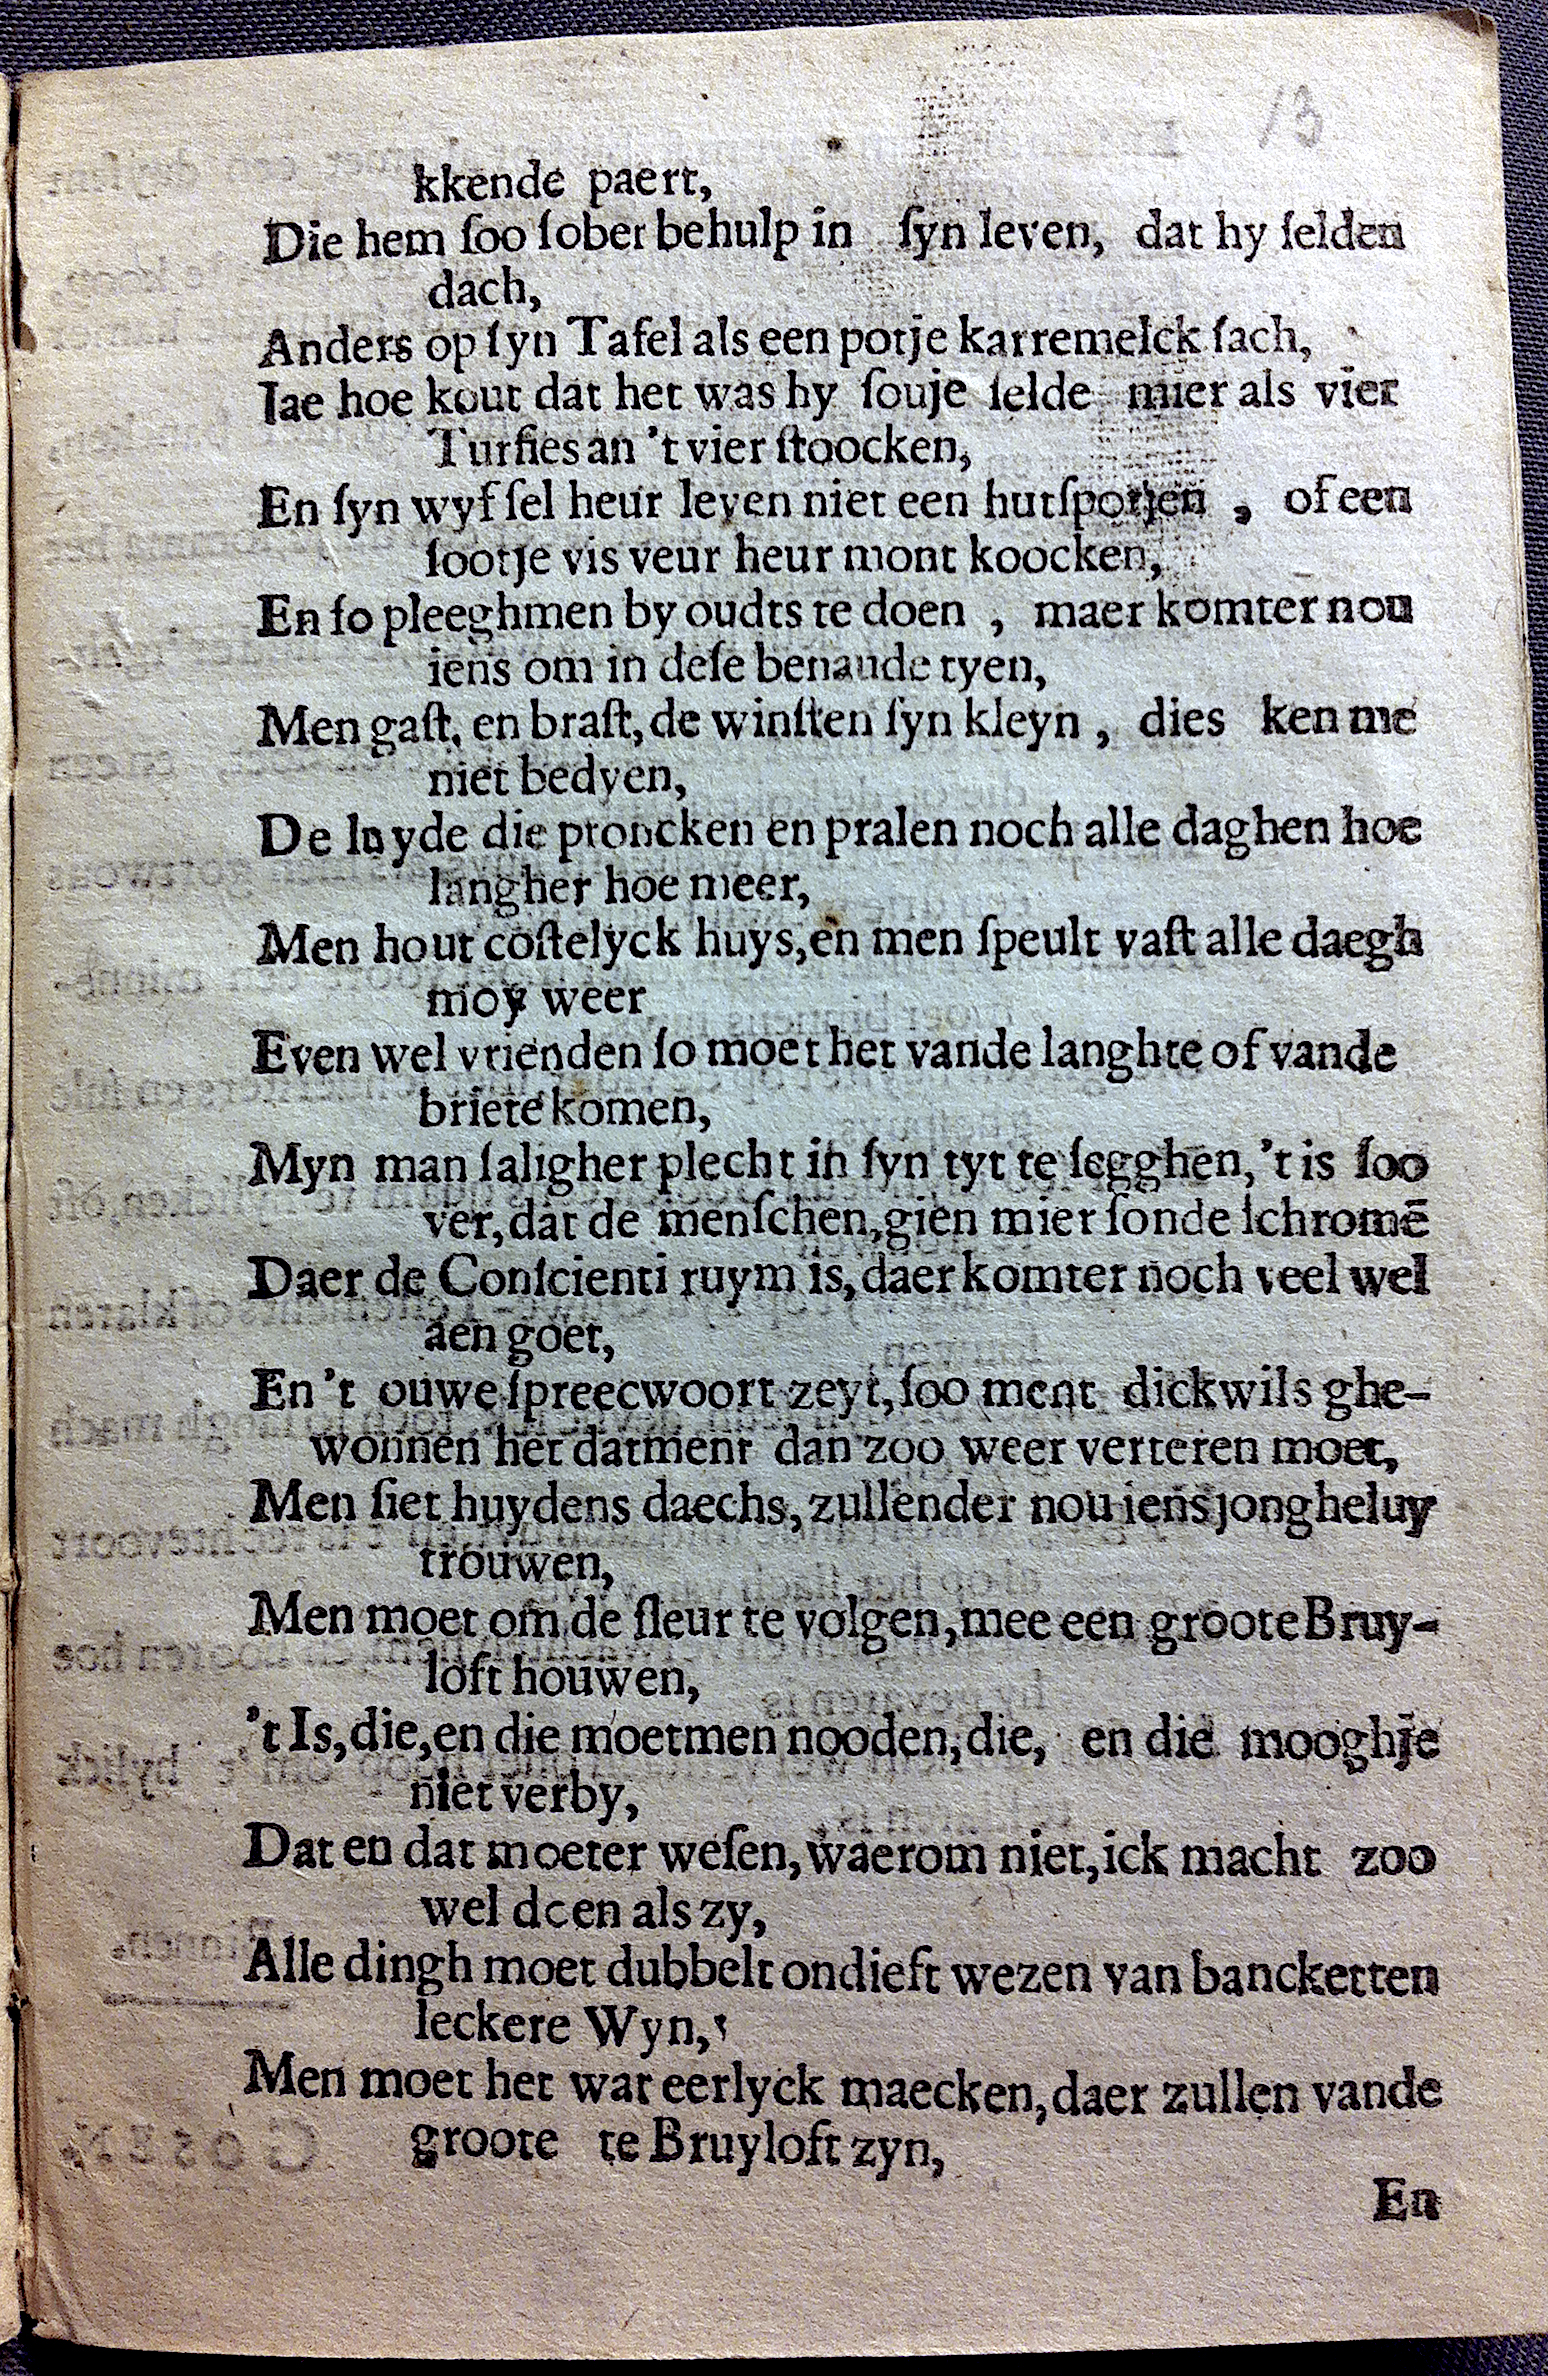 13
kkende paert,
Die hem ſoo ſober behulp in ſyn leven, dat hy ſelden
dach,
Anders op ſyn Tafel als een potje karremelck ſach,
Iae hoe kout dat het was hy ſouje ſelde mier als vier
Turfies an 't vier ſtoocken,
En ſyn wyf ſel heur leven niet een hutſpotjen, of een
ſootje vis veur heur mont koocken,
En ſo pleeghmen by oudts te doen, maer komter nou
iens om in deſe benaude tyen,
Men gaſt, en braſt, de winſten ſyn kleyn, dies ken me
niet bedyen,
De luyde die proncken en pralen noch alle daghen hoe
langher hoe meer,
Men hout coſtelyck huys, en men ſpeult vaſt alle daegh
moy weer
Even wel vrienden ſo moet het vande langhte of vande
briete komen,
Myn man ſaligher plecht in ſyn tyt te ſegghen, 't is ſoo
ver, dat de menſchen, gien mier ſonde ſchromē
Daer de Conſcienti ruym is, daer komter noch veel wel
aen goet,
En 't ouwe ſpreecwoort zeyt, ſoo ment dickwils ghe-
wonnen het datment dan zoo weer verteren moet,
Men ſiet huydens daechs, zullender nou iens jongheluy
trouwen,
Men moet om de ſleur te volgen, mee een groote Bruy-
loft houwen,
't Is, die, en die moetmen nooden, die, en die mooghje
niet verby,
Dat en dat moeter weſen, waerom niet, ick macht zoo
wel doen als zy,
Alle dingh moet dubbelt ondieft wezen van banckетten
leckere Wyn,
Men moet het wat eerlyck maecken, daer zullen vande
groote te Bruyloft zyn,
En